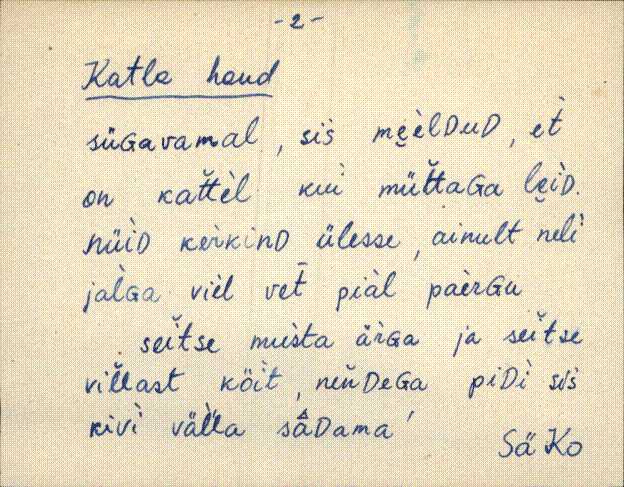 -2-
Katla haud
süGavamal, sis̀ meè̬̬lDuD, èt
on kat̆tèl kui müt̆taGa le̬ìD.
nüìD kèrkinD ülesse, ainult nelì
jalGa vièl vet̄ piàl paèrGu
. seit̆se mus̀ta ärGa ja seit̆se
vil̆last köit̀, neǹDeGa piDì sìs
kivì väl̆la sâDama!
SäKo